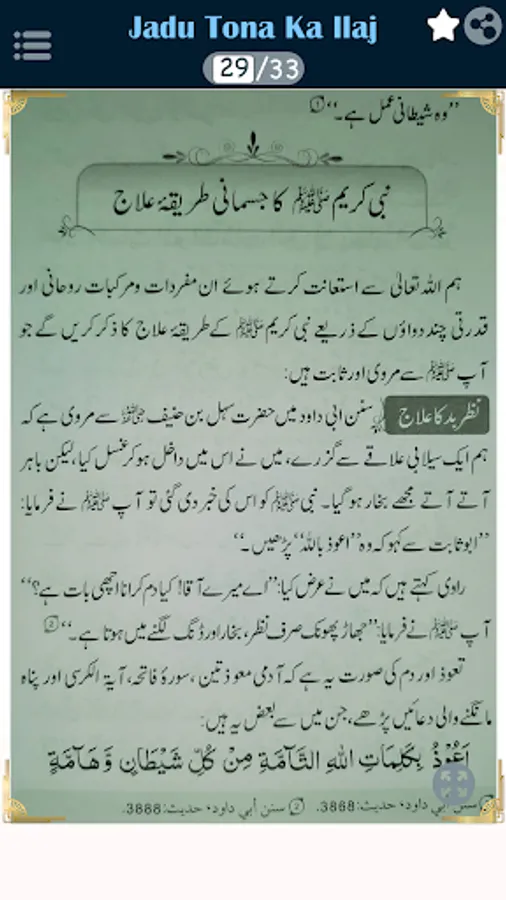 Jadu Tona Ka Ilaj
29/33
’’وہ شیطانی عمل ہے۔‘‘ ①
نبی کریم ﷺ کا جسمانی طریقۂ علاج
ہم اللہ تعالیٰ سے استعانت کرتے ہوئے ان مفردات ومرکبات روحانی اور
قدرتی چند دواؤں کے ذریعے نبی کریم ﷺ کے طریقۂ علاج کا ذکر کریں گے جو
آپ ﷺ سے مروی اور ثابت ہیں:
نظر بد کا علاج سنن ابی داود میں حضرت سہل بن حنیف رضی اللہ عنہ سے مروی ہے کہ
ہم ایک سیلابی علاقے سے گزرے، میں نے اس میں داخل ہو کر غسل کیا، لیکن باہر
آتے آتے مجھے بخار ہو گیا۔ نبی ﷺ کو اس کی خبر دی گئی تو آپ ﷺ نے فرمایا:
’’ابو ثابت سے کہو کہ وہ ’’اعوذ باللہ‘‘ پڑھیں۔‘‘
راوی کہتے ہیں کہ میں نے عرض کیا: ’’اے میرے آقا! کیا دم کرانا اچھی بات ہے؟‘‘
آپ ﷺ نے فرمایا: ’’جھاڑ پھونک صرف نظر، بخار اور ڈنگ لگنے میں ہوتا ہے۔‘‘ ②
تعوذ اور دم کی صورت یہ ہے کہ آدمی معوذتین، سورۂ فاتحہ، آیۃ الکرسی اور پناہ
مانگنے والی دعائیں پڑھے، جن میں سے بعض یہ ہیں:
اَعُوْذُ بِكَلِمَاتِ اللهِ التَّآمَّةِ مِنْ كُلِّ شَيْطَانٍ وَّهَآمَّةٍ
سنن أبي داود، حديث: 3868. ② سنن أبي داود، حديث: 3888.